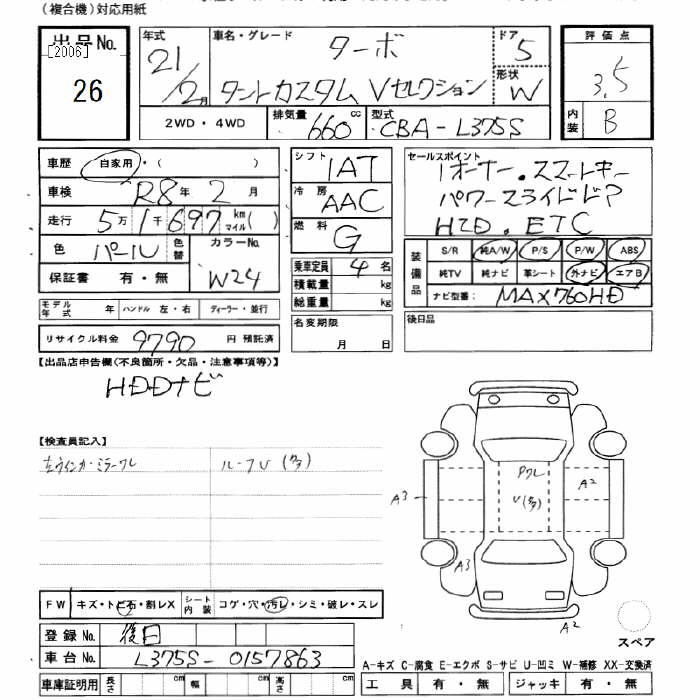 (複合機)対応用紙
出品No. [2006] 26
年式 21/2月
車名・グレード ターボ
タントカスタム Vセレクション
ドア 5
形状 W
評価点 3.5
内装 B
2WD・4WD 排気量 660cc 型式 CBA-L375S
車歴 自家用・( )
車検 R8年 2月
走行 5万1千697km マイル( )
色 パール 色替 カラーNo. W24
保証書 有・無
モデル年式 年 ハンドル 左・右 ディーラー・並行
リサイクル料金 9790 円 預託済
シフト IAT
冷房 AAC
燃料 G
乗車定員 4名
積載量 kg
総重量 kg
名変期限 月 日
セールスポイント
1オーナー.スマートキー
パワースライドドア
HID.ETC
装備品 S/R 純A/W P/S P/W ABS
純TV 純ナビ 革シート 外ナビ エアB
ナビ型番: MAX760HD
後日品
【出品店申告欄(不良箇所・欠品・注意事項等)】
HDDナビ
【検査員記入】
左ウィンカーミラーワレ
ルーフU(多)
Pワレ
U(多)
A2
A3
A3
A2
スペア
FW キズ・トビ石・割レX シート内装 コゲ・穴・汚レ・シミ・破レ・スレ
登録No. 後日
車台No. L375S-0157863
車庫証明用 長さ cm 幅 cm 高さ cm
A-キズ C-腐食 E-エクボ S-サビ U-凹ミ W-補修 XX-交換済
工具 有・無 ジャッキ 有・無